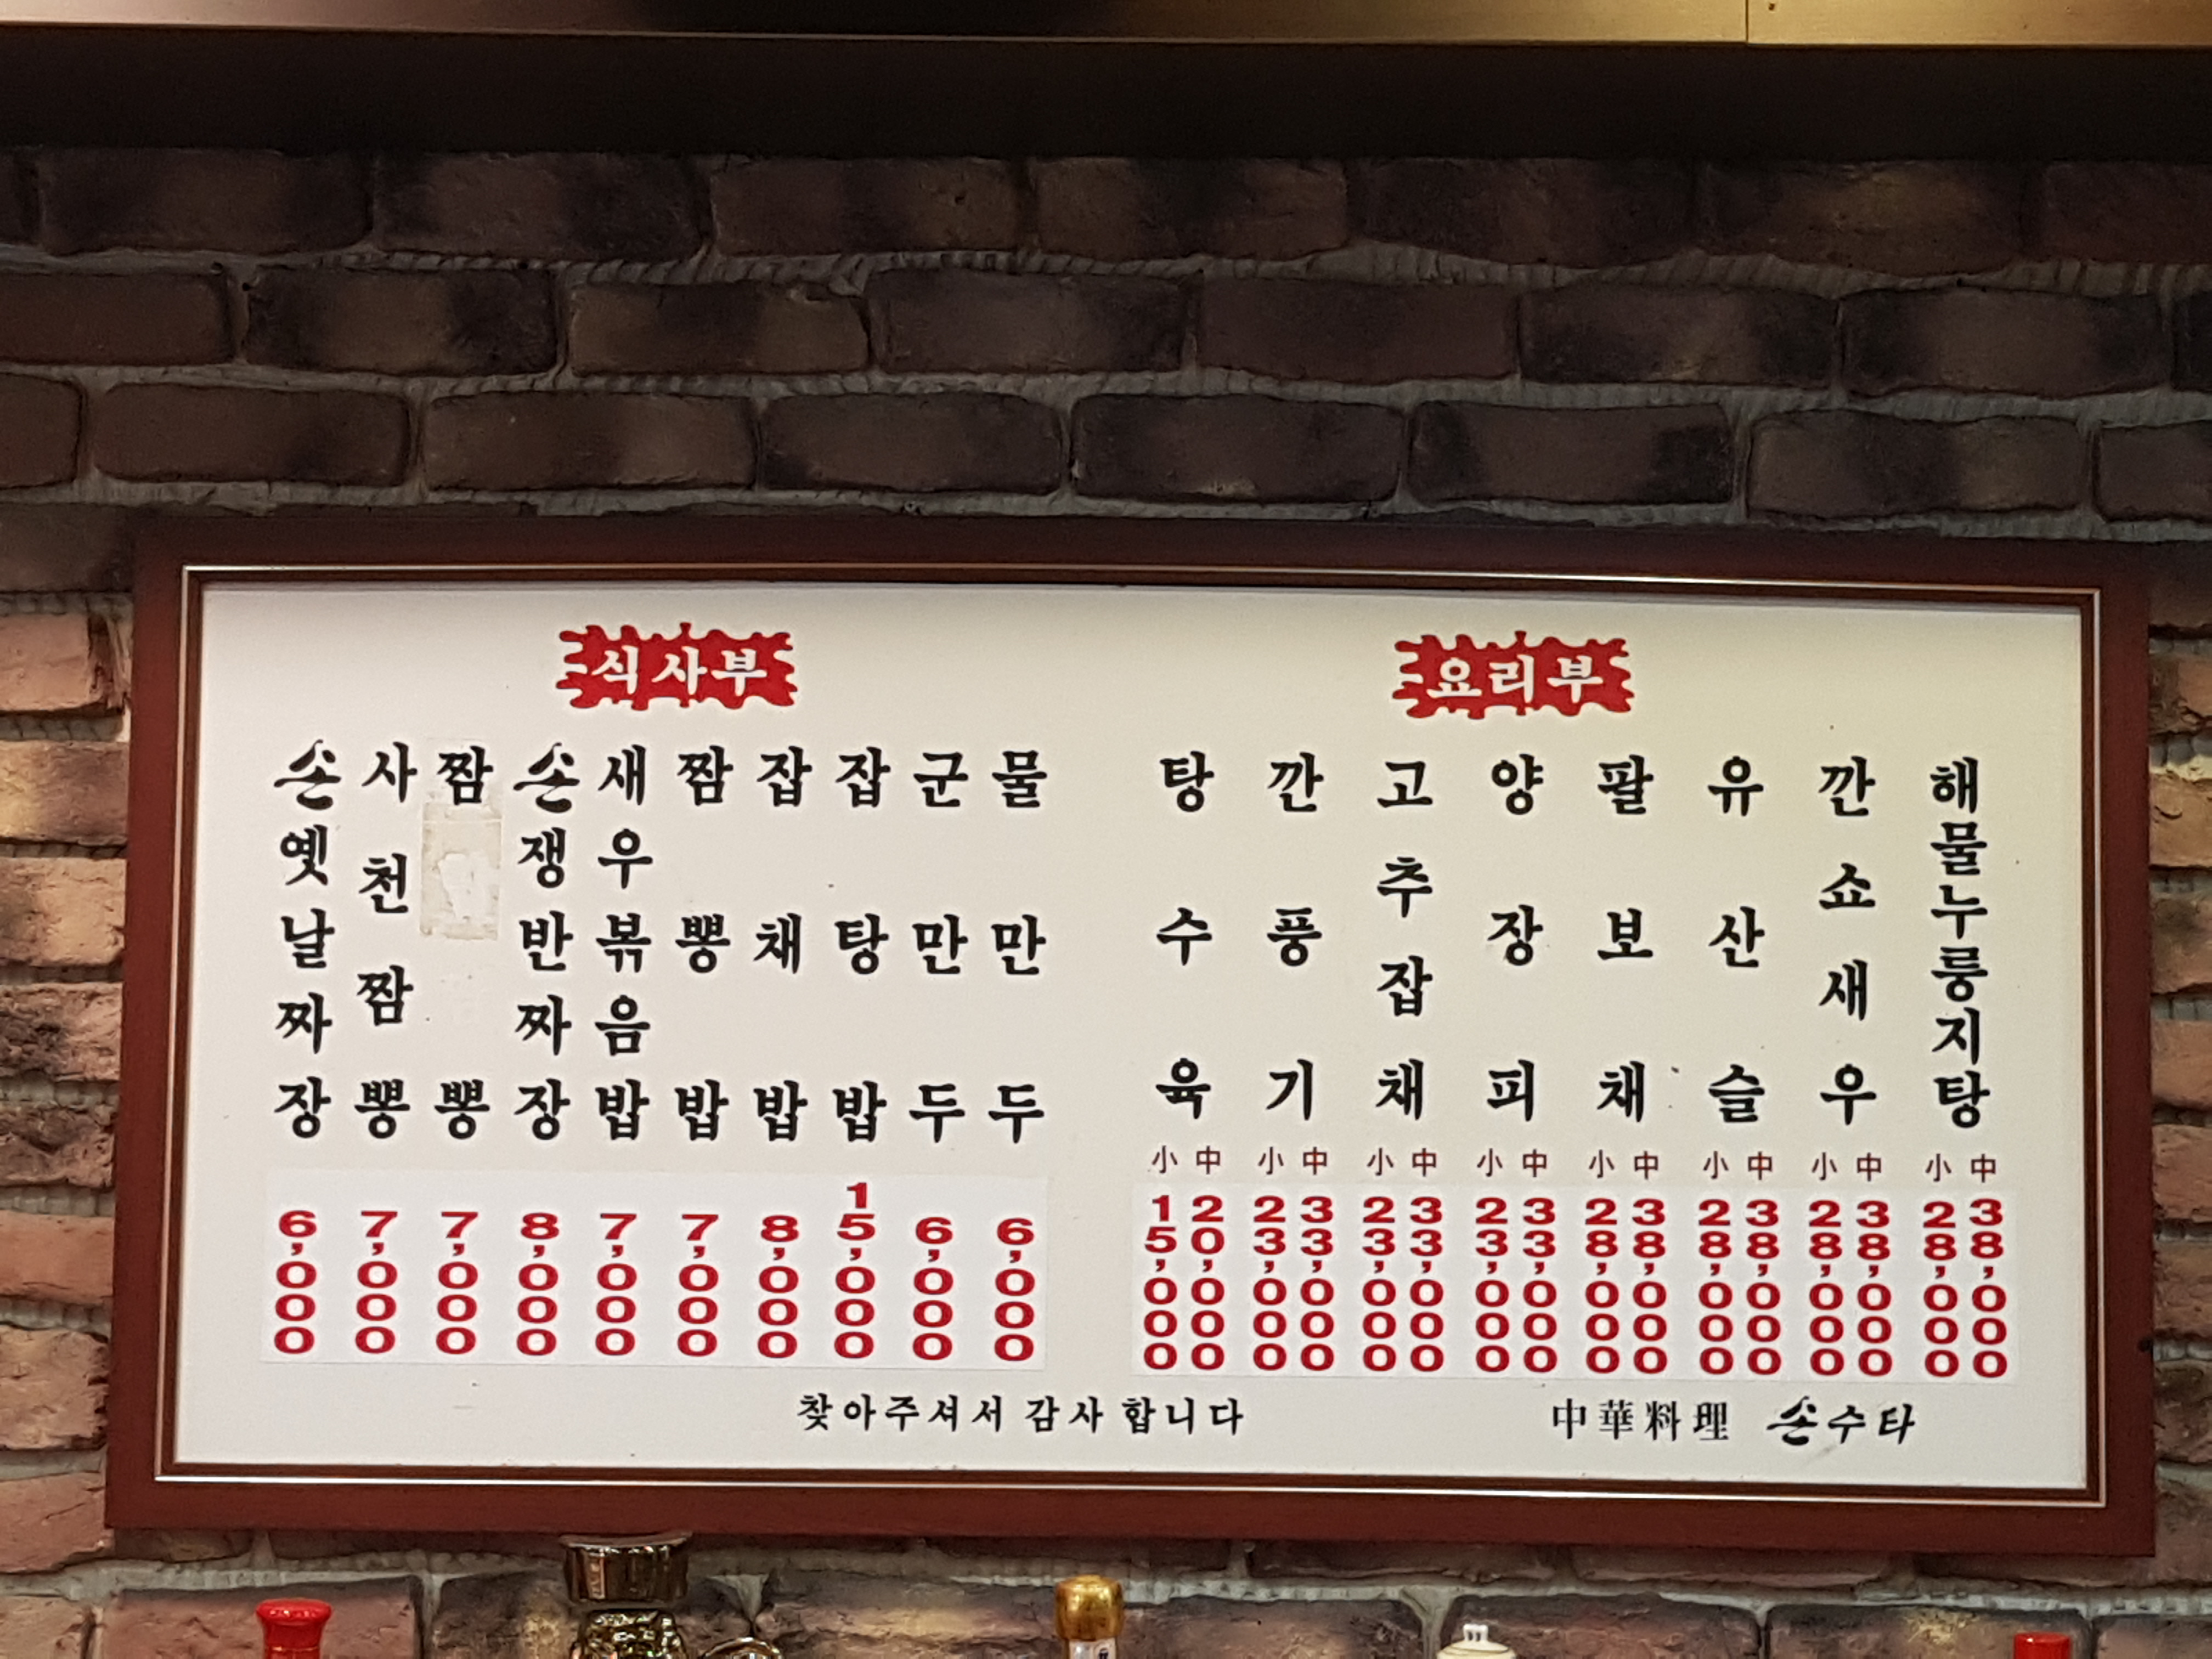 식사부
손옛날짜장 6,000
사천짬뽕 7,000
짬뽕 7,000
손쟁반짜장 8,000
새우볶음밥 7,000
짬뽕밥 7,000
잡채밥 8,000
잡탕밥 15,000
군만두 6,000
물만두 6,000
요리부
탕수육 小 15,000 中 20,000
깐풍기 小 23,000 中 33,000
고추잡채 小 23,000 中 33,000
양장피 小 23,000 中 33,000
팔보채 小 28,000 中 38,000
유산슬 小 28,000 中 38,000
깐쇼새우 小 28,000 中 38,000
해물누룽지탕 小 28,000 中 38,000
찾아주셔서 감사합니다
中華料理 손수타